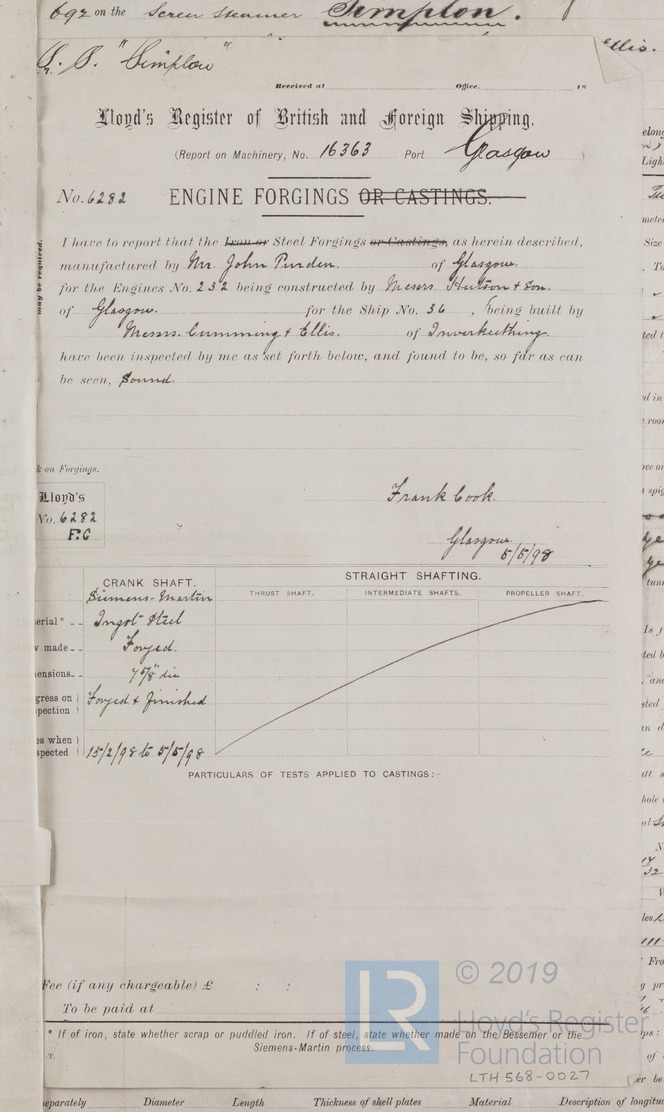 692 on the Screw Steamer Simplon.
S. S. "Simplon"
Ellis.
Received at Office, 18
Lloyd's Register of British and Foreign Shipping.
(Report on Machinery, No. 16363 Port Glasgow )
No. 6282 ENGINE FORGINGS OR CASTINGS.
I have to report that the Iron or Steel Forgings or Castings, as herein described,
manufactured by Mr. John Purden. of Glasgow.
for the Engines No. 232 being constructed by Messrs. Hutson & Son.
of Glasgow. for the Ship No. 36, being built by
Messrs. Cumming & Ellis. of Inverkeithing.
have been inspected by me as set forth below, and found to be, so far as can
be seen, Sound.
may be required.
k on Forgings.
Lloyd's
No. 6282
F.C
Frank Cook.
Glasgow.
5/5/98
CRANK SHAFT. STRAIGHT SHAFTING.
THRUST SHAFT. INTERMEDIATE SHAFTS. PROPELLER SHAFT.
Siemens-Martin
erial* Ingot Steel
w made Forged.
ensions 7 5/8" dia
gress on
spection Forged & finished
es when
spected 15/2/98 to 5/5/98
PARTICULARS OF TESTS APPLIED TO CASTINGS:-
Fee (if any chargeable) £ : :
To be paid at
* If of iron, state whether scrap or puddled iron. If of steel, state whether made on the Bessemer or the
Siemens-Martin process.
LR
© 2019
Lloyd's Register
Foundation
LTH 568-0027
separately Diameter Length Thickness of shell plates Material Description of longitu